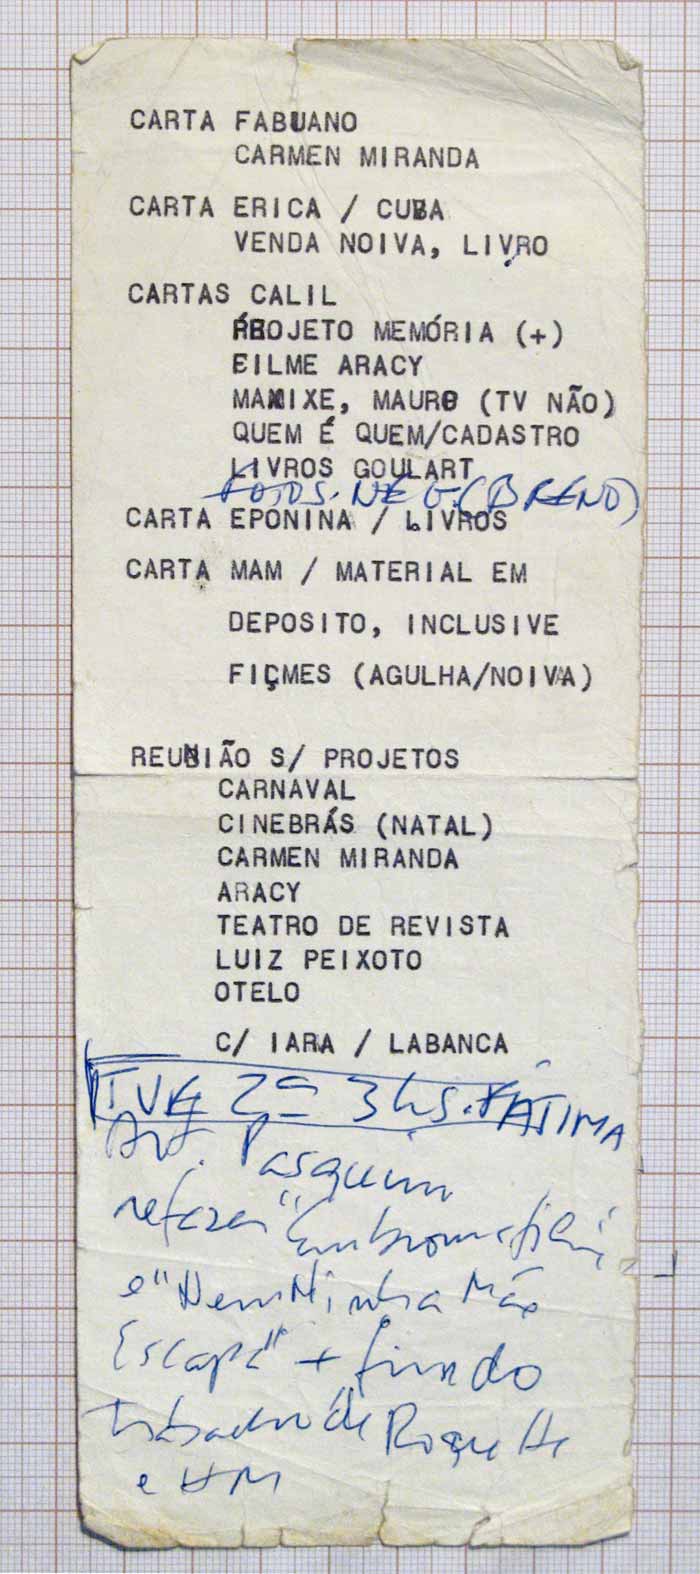 CARTA FABUANO
CARMEN MIRANDA
CARTA ERICA / CUBA
VENDA NOIVA, LIVRO
CARTAS CALIL
PROJETO MEMÓRIA (+)
FILME ARACY
MAXIXE, MAURO (TV NÃO)
QUEM É QUEM/CADASTRO
LIVROS GOULART
FOTOS. NEG. (BRENO)
CARTA EPONINA / LIVROS
CARTA MAM / MATERIAL EM
DEPOSITO, INCLUSIVE
FIÇMES (AGULHA/NOIVA)
REUNIÃO S/ PROJETOS
CARNAVAL
CINEBRÁS (NATAL)
CARMEN MIRANDA
ARACY
TEATRO DE REVISTA
LUIZ PEIXOTO
OTELO
C/ IARA / LABANCA
TVE 2ª 3 hs. FÁTIMA
Pasquim
refazer
e "Nem Minha Mãe
Escapa" + fundo
de Roquette
e HM